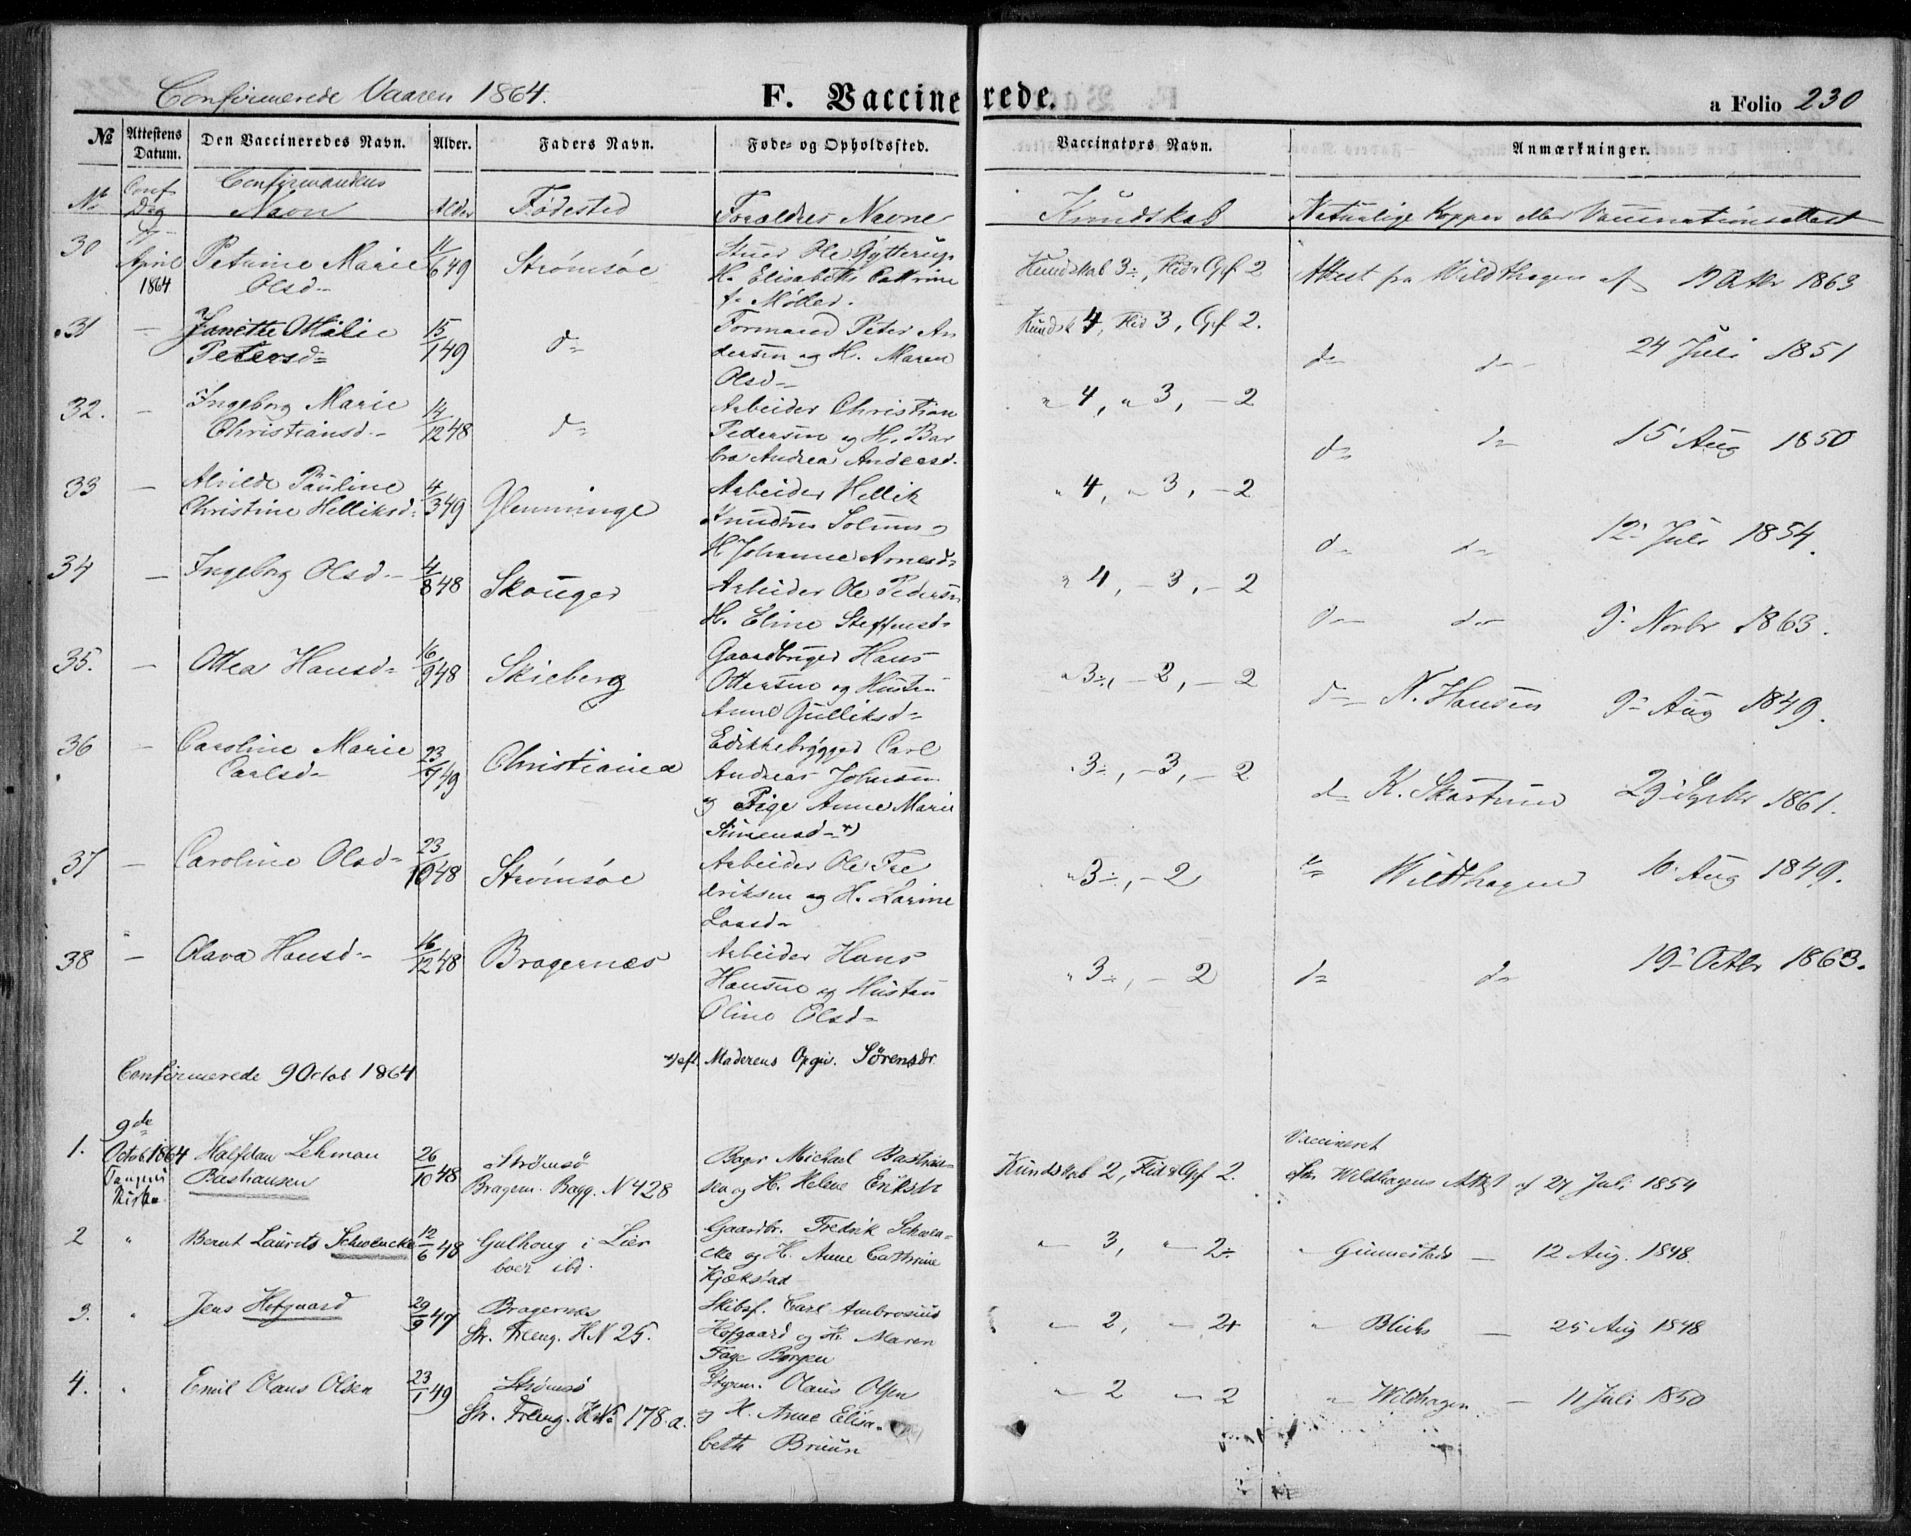 Confirmerede Vaaren 1864.
F. Vaccinerede.
a Folio 230
№ Attestens Datum. Den Vaccineredes Navn. Alder. Faders Navn. Føde- og Opholdsted. Vaccinators Navn. Anmærkninger.
No Conf Dag Confirmandens Navn Alder Fødested Forældres Navne Kundskab Naturlige Kopper eller Vaccinationsattest
30 April 1864 Petrine Marie Olsd 11/6 49 Strømsøe Ole Gytterup H. Elisabeth Cathrine f. Møller. Kundskab 3÷, Flid & Opf 2 Attest fra Wildthagen af 1863
31 — Janette Malie Petersd 15/1 49 d= Formand Peter Andersen og H. Maren Olsd Kundsk 4, Flid 3, Opf 2. d= d= 24 Juli 1851
32. — Ingeborg Marie Christiansd 14/12 48 d= Arbeider Christian Pedersen og H. Barbra Andrea Andersd. " 4, " 3, — 2 d= d= 15 Aug 1850
33 — Alvilde Pauline Christine Helliksd 4/3 49 Glemminge Arbeider Hellik Knudsen Solum H. Johanne Arnesd " 4, " 3, — 2 d= d= 12 Juli 1854.
34 — Ingeborg Olsd 4/8 48 Skouger Arbeider Ole Pedersen H. Eline Steffensd " 4, — 3, — 2 d= d= 9 Novbr 1863.
35. — Ottea Hansd 16/9 48 Skieberg Gaardbruger Hans Ottersen og Hustru Anne Gulliksd " 3÷, — 2, — 2 d= N. Hansen 9 Aug 1849.
36 — Caroline Marie Carlsd 23/7 49 Christiania Edikkebrygger Carl Andreas Johnsen og Pige Anne Marie Simensd *) " 3÷, — 3, — 2 d= K. Skartum 29 1861.
37 — Caroline Olsd 23/10 48 Strømsøe Arbeider Ole Fredriksen og H. Karine Larsd " 3÷, — 2 Wildthagen 10 Aug 1849.
38 — Olava Hansd 16/12 48 Bragernes Arbeider Hans Hansen og Hustru Oline Olsd " 3÷, — 2 d= d= 19 Octbr 1863.
*) eft. Moderens Opgiv. Sørensdr
Confirmerede 9 Octob 1864
1. 9de Octob. 1864 Tangens Kirke Halfdan Lehman Basthausen 26/10 48 Strømsø Bragern. Bagg. N 428 Bager Michael Basthausen og H. Helene Eriksdr Kundskab 2, Flid & Opf 2. Vaccineret efter Wildhagens Attest af 27 Juli 1854
2 " Bernt Laurits Schwencke 12/6 48 Gulhoug i Lier boer ibd. Gaardbr. Fredrik Schwencke og H. Anne Cathrine Kjøkstad " 3, " 2÷ " Gunnestads — 12 Aug. 1848.
3. " Jens Hofgaard 29/9 47 Bragernes Str. Treng. H N 25. Skibsf. Carl Ambrosius Hofgaard og H. Maren Fage Borgen " 2, " 2+ " Blichs — 25 Aug 1848
4. " Emil Olaus Olsen 23/1 49 Strømsø Str. Treng. H No 178.a. Styrm. Olaus Olsen og H. Anne Elisabeth Bruun " 2 " 2 " Wildhagen — 11 Juli 1850